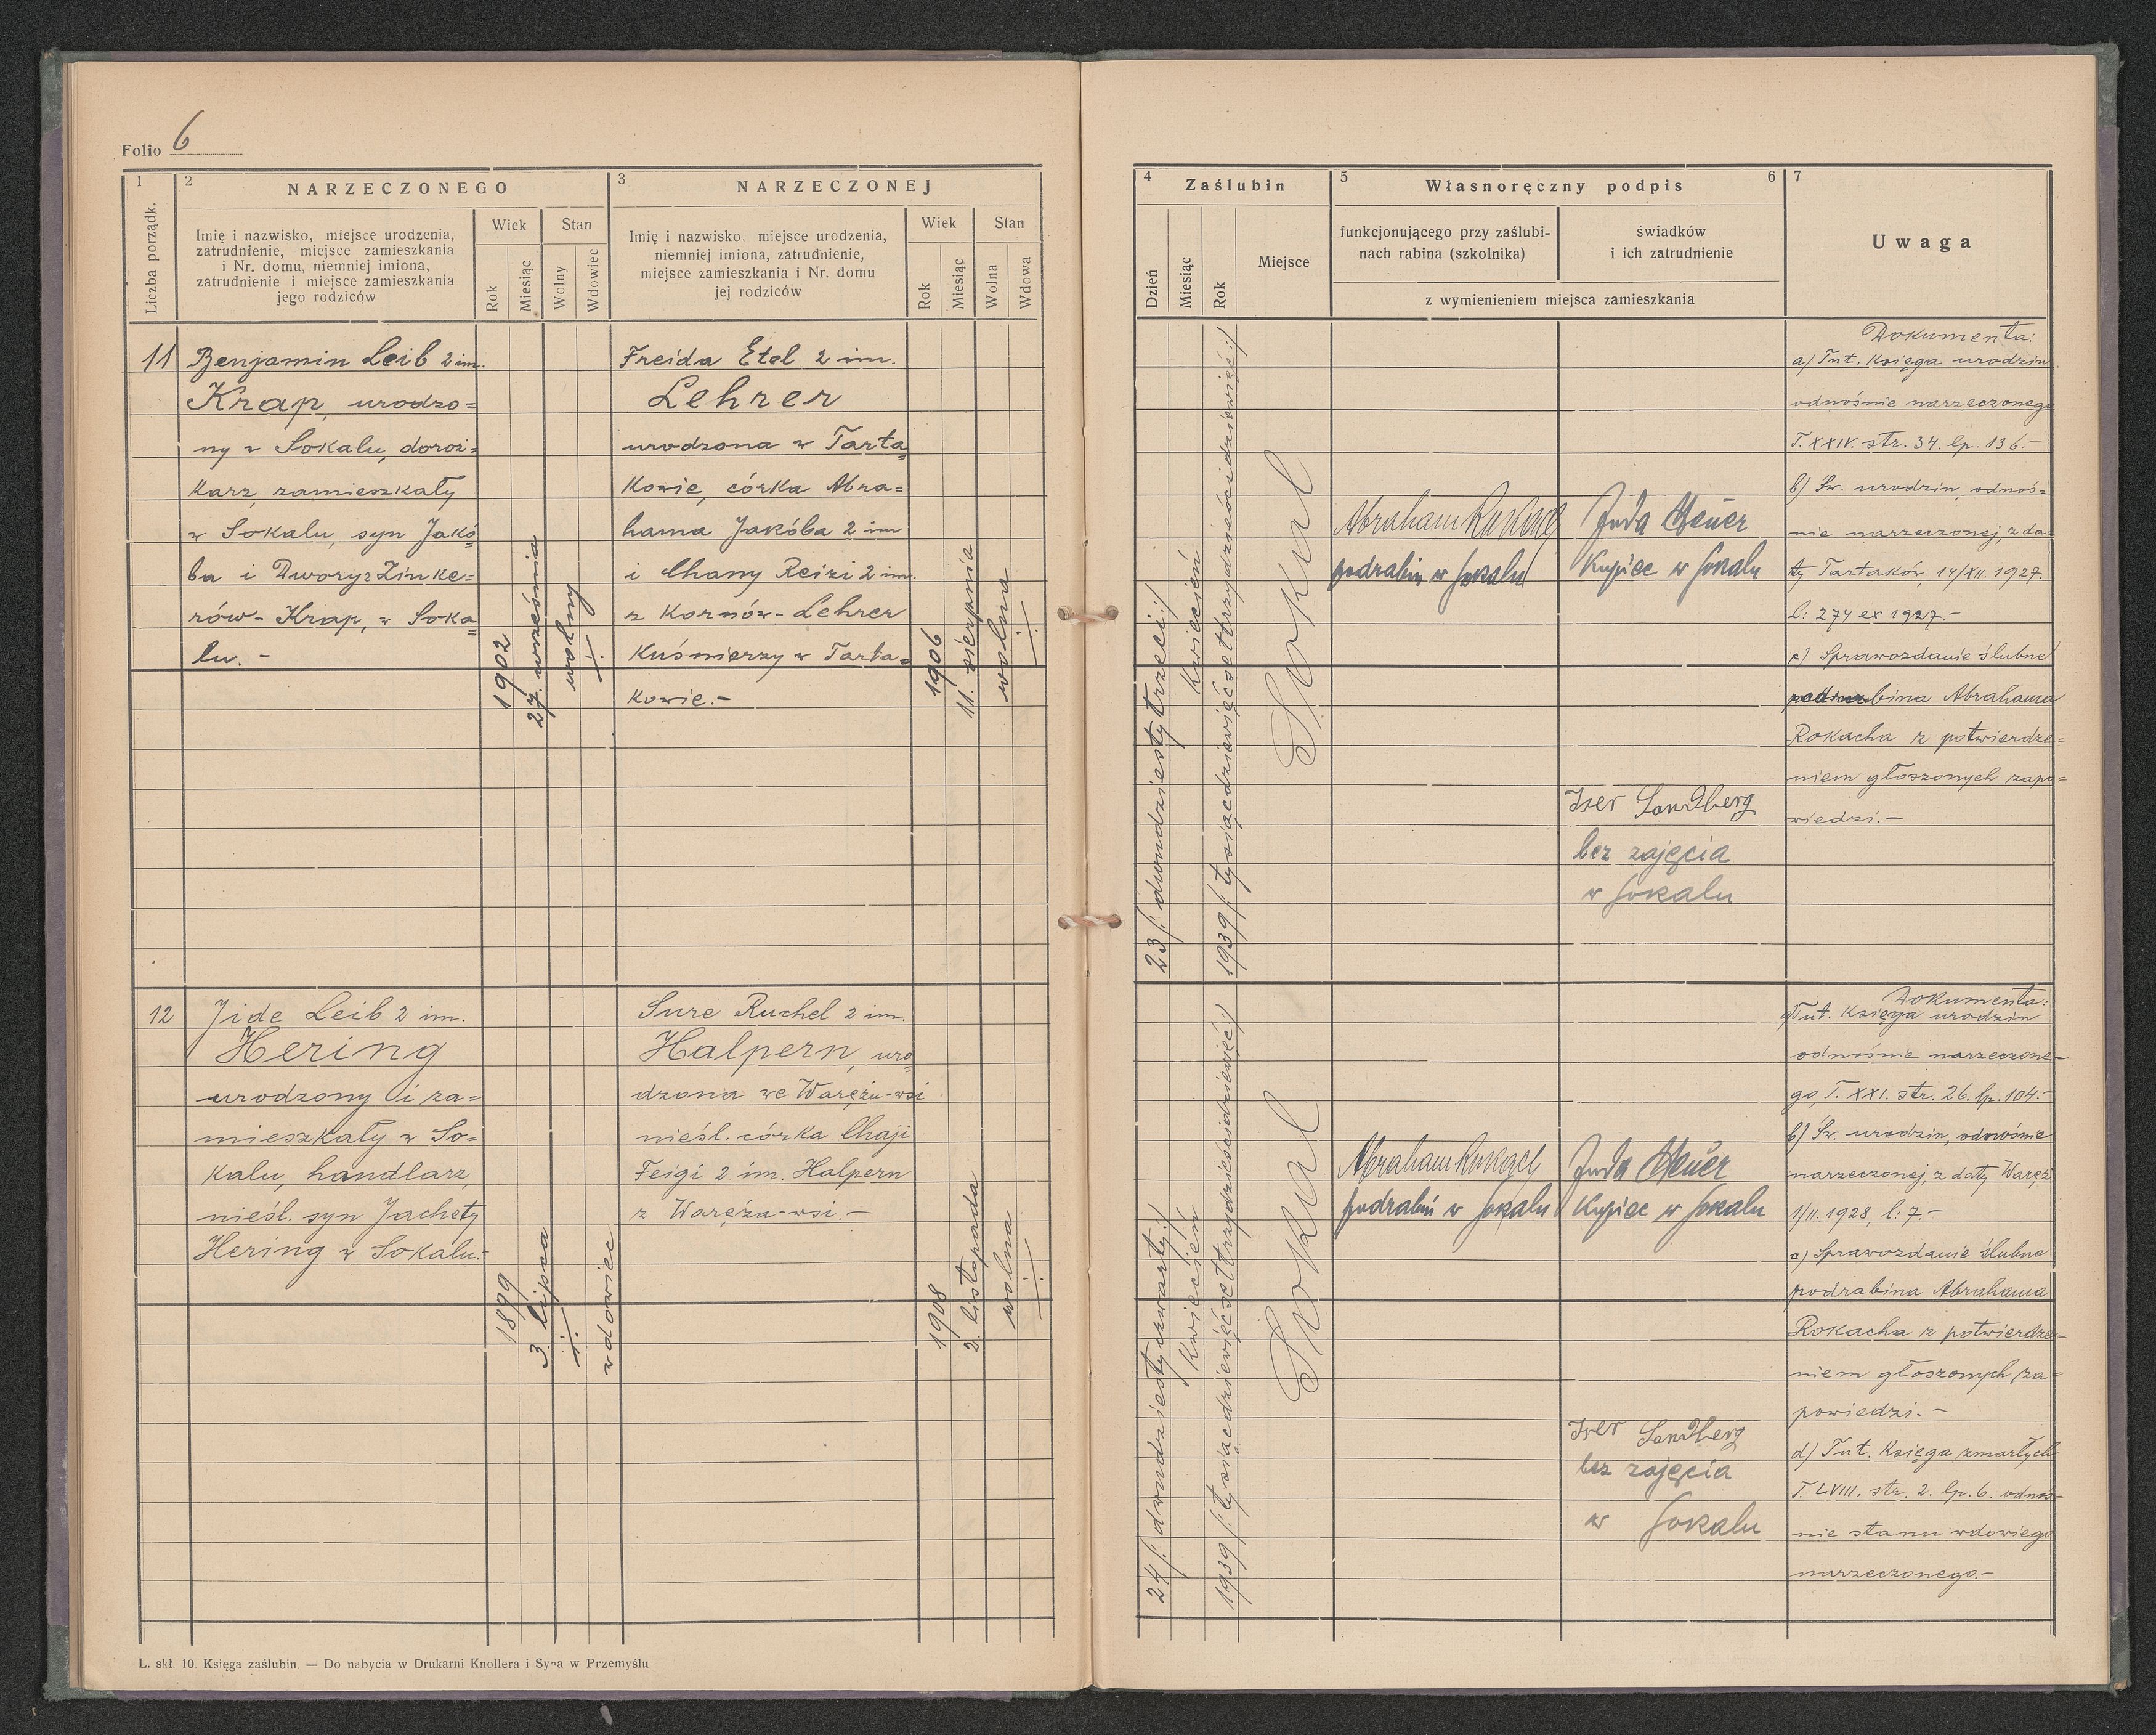 Folio 6
1
2
NARZECZONEGO
3
NARZECZONEJ
Liczba porządk.
Imię i nazwisko, miejsce urodzenia,
zatrudnienie, miejsce zamieszkania
i Nr. domu, niemniej imiona,
zatrudnienie i miejsce zamieszkania
jego rodziców
Wiek
Stan
Rok
Miesiąc
Wolny
Wdowiec
Imię i nazwisko, miejsce urodzenia,
niemniej imiona, zatrudnienie,
miejsce zamieszkania i Nr. domu
jej rodziców
Wiek
Stan
Rok
Miesiąc
Wolna
Wdowa
11
Benjamin Leib 2 im.
Krap, urodzo=
ny w Sokalu, doroż=
karz, zamieszkały
w Sokalu, syn Jakó=
ba i Dwory z Zinke=
rów - Krap, w Soka=
lu. -
1902
27. września
wolny
Freida Etel 2 im.
Lehrer
urodzona w Tarta=
kowie, córka Abra=
hama Jakóba 2 im
i Chany Reizi 2 im.
z Kornów - Lehrer
Kuśmierzy w Tarta=
kowie. -
1906
11. sierpnia
wolna
12
Jide Leib 2 im.
Hering
urodzony i za=
mieszkały w So=
kalu, handlarz,
nieśl. syn Jachety
Hering w Sokalu. -
1899
3. lipca
wdowiec
Sure Ruchel 2 im.
Halpern, uro
dzona we Warężu-wsi
nieśl. córka Chaji
Feigi 2 im. Halpern
z Warężu-wsi. -
1908
2. listopada
wolna
L. skł. 10. Księga zaślubin. — Do nabycia w Drukarni Knollera i Syna w Przemyślu
4
Zaślubin
5
Własnoręczny podpis
6
7
Dzień
Miesiąc
Rok
Miejsce
funkcjonującego przy zaślubi-
nach rabina (szkolnika)
świadków
i ich zatrudnienie
z wymienieniem miejsca zamieszkania
Uwaga
23 /: dwudziesty trzeci :/
Kwiecień
1939 /: tysiącdziewięćsettrzydzieścidziewięć :/
Sokal
Abraham Rokach
podrabin w Sokalu
Juda Heuer
Kupiec w Sokalu
Iser Sandberg
bez zajęcia
w Sokalu
Dokumenta:
a) Tut. Księga urodzin
odnośnie narzeczonego
T. XXIV. str. 34. lp. 136. -
b) Św. urodzin, odnoś=
nie narzeczonej, z da=
ty Tartaków, 14/XII. 1927.
l: 274 ex 1927. -
c) Sprawozdanie ślubne
podrabina Abrahama
Rokacha z potwierdze=
niem głoszonych zapo=
wiedzi. -
24 /: dwudziesty czwarty :/
Kwiecień
1939 /: tysiącdziewięćsettrzydzieścidziewięć :/
Sokal
Abraham Rokach
podrabin w Sokalu
Juda Heuer
Kupiec w Sokalu
Iser Sandberg
bez zajęcia
w Sokalu
Dokumenta:
a) Tut. Księga urodzin
odnośnie narzeczone=
go, T. XXI. str. 26. lp. 104. -
b) Św. urodzin, odnośnie
narzeczonej, z daty Waręż
1/II. 1928, l: 7. -
c) Sprawozdanie ślubne
podrabina Abrahama
Rokacha z potwierdze=
niem głoszonych za=
powiedzi. -
d) Tut. Księga zmarłych
T. LVIII. str. 2. lp. 6. odnoś=
nie stanu wdowiego
narzeczonego. -